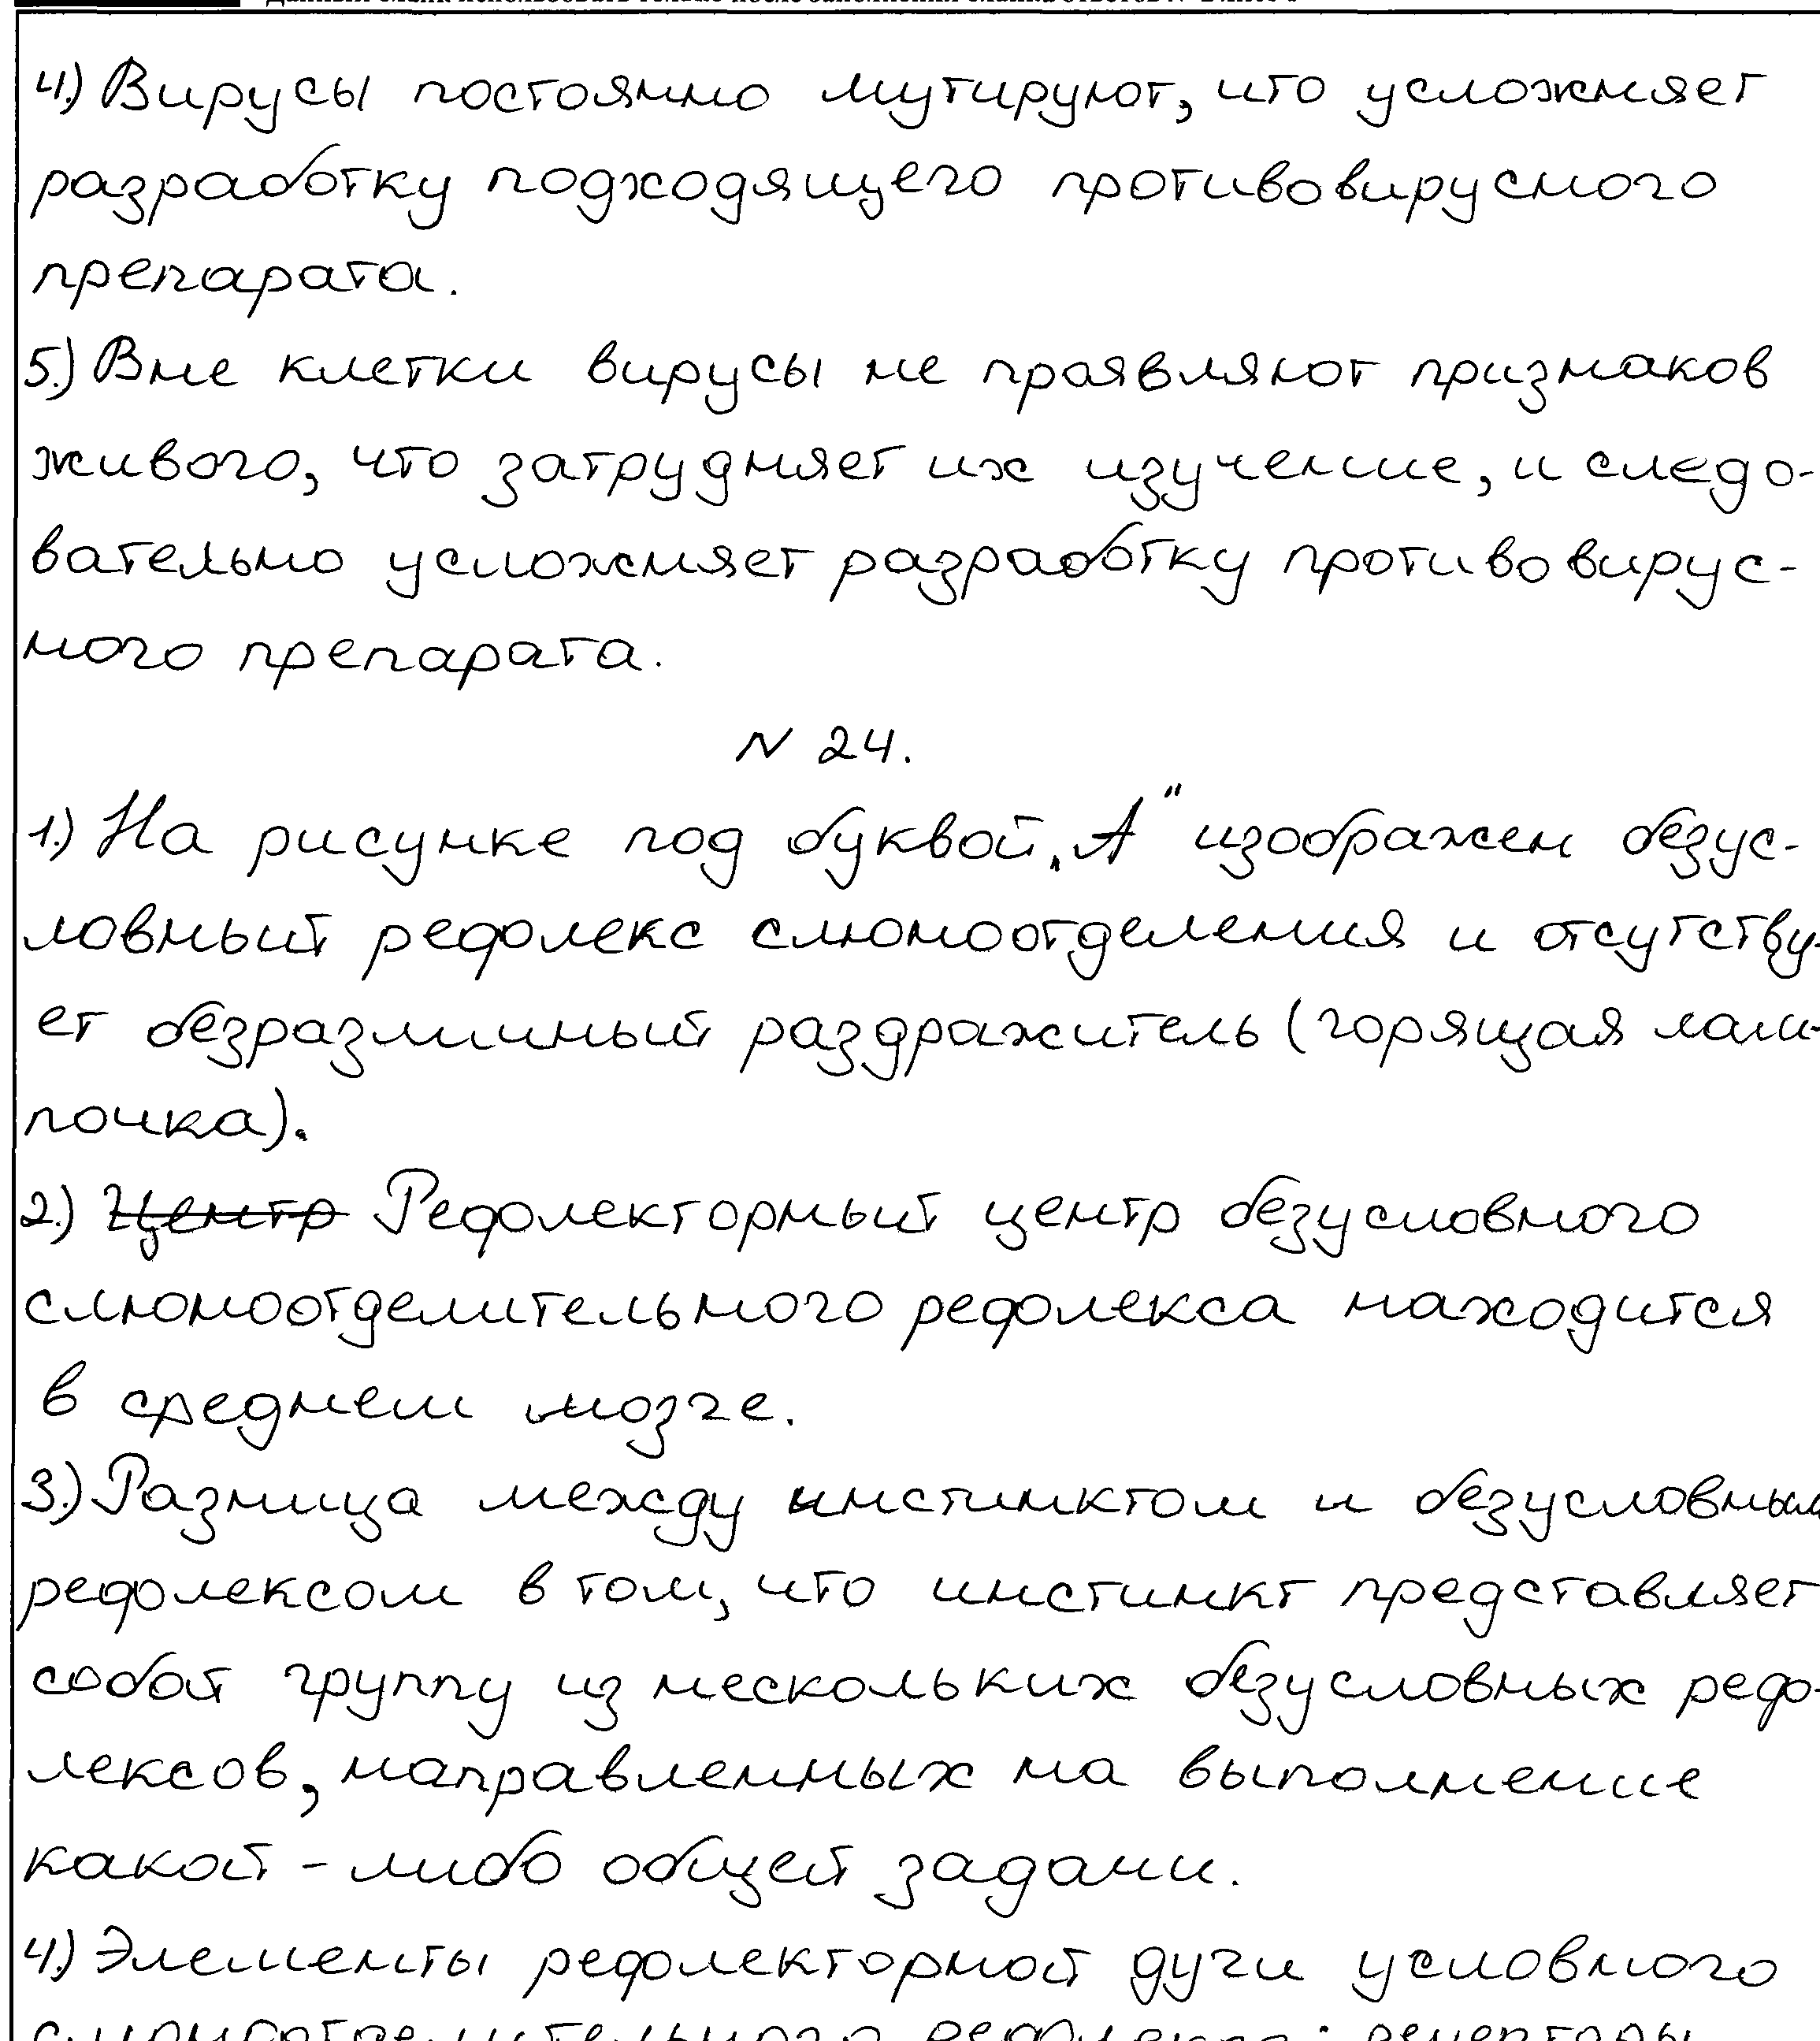 4.) Вирусы постоянно мутируют, что усложняет
разработку подходящего противовирусного
препарата.
5.) Вне клетки вирусы не проявляют признаков
живого, что затрудняет их изучение, и следо-
вательно усложняет разработку противовирус-
ного препарата.
N 24.
1.) На рисунке под буквой „А" изображен безус-
ловный рефлекс слюноотделения и отсутству-
ет безразличный раздражитель (горящая лам-
почка).
2.) Центр Рефлекторный центр безусловного
слюноотделительного рефлекса находится
в среднем мозге.
3.) Разница между инстинктом и безусловным
рефлексом в том, что инстинкт представляет
собой группу из нескольких безусловных реф-
лексов, направленных на выполнение
какой-либо общей задачи.
4.) Элементы рефлекторной дуги условного
слюноотделительного рефлекса: рецепторы